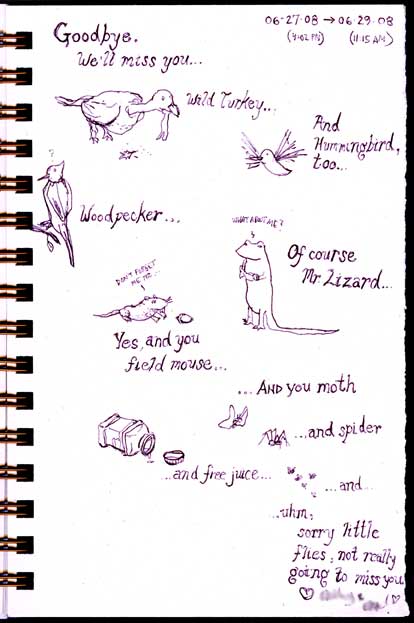 06-27-08 → 06-29-08
(4:02 PM) (11:15 AM)
Goodbye.
We'll miss you...
Wild Turkey...
And
Hummingbird,
too...
?
Woodpecker...
WHAT ABOUT ME?
Of course
Mr. Lizard...
DON'T FORGET
ME
Yes, and you
field mouse...
...AND you moth
...and spider
...and free juice...
...and...
...uhm,
sorry little
flies, not really
going to miss you